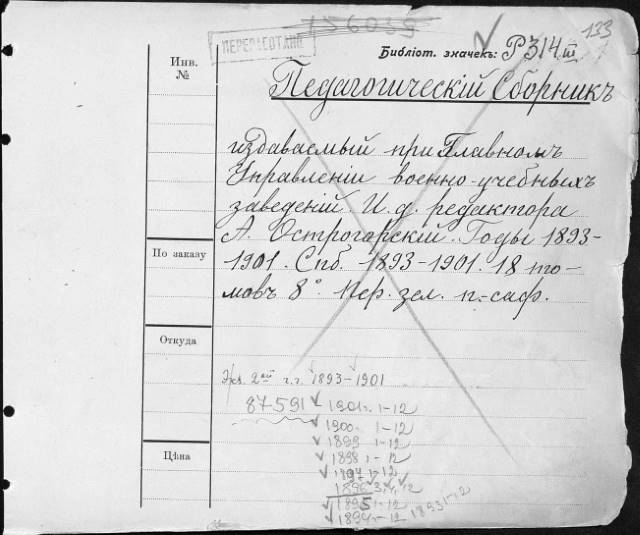 156039
133
ПЕРЕРАБОТАНО
Библіот. значекъ: Р314 ш
Инв.
№
Педагогическій Сборникъ
издаваемый при Главномъ
Управленіи военно-учебныхъ
заведеній. И. д. редактора
А. Острогорскій. Годы 1893-
1901. Спб. 1893-1901. 18 то-
мовъ 8°. Пер. зел. п.-саф.
По заказу
Откуда
Экз. 2ой г.г. 1893-1901
87591
1901г. 1-12
1900. 1-12
1899 1-12
1898 1-12
1897 1-12
1896 12
1895 1-12
1894 1-12 1893 1-12
Цѣна